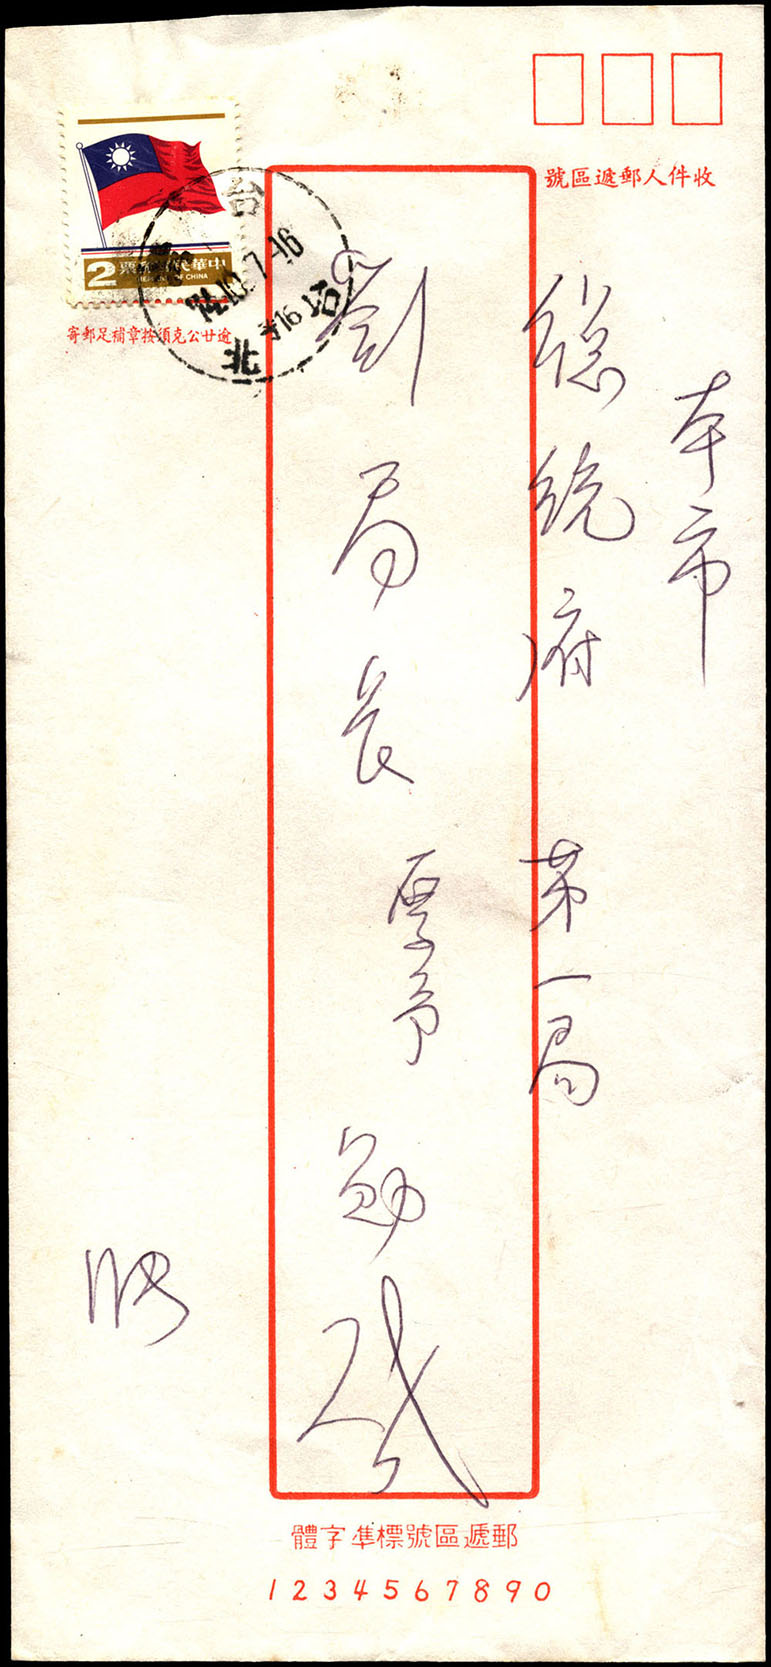 收件人郵遞區號
中華民國郵票
2
REPUBLIC OF CHINA
逾廿公克須按章補足郵寄
台
10.7-16
北
本市
總統府 第一局
劉局長 厚予 勛啟
郵遞區號標準字體
1234567890